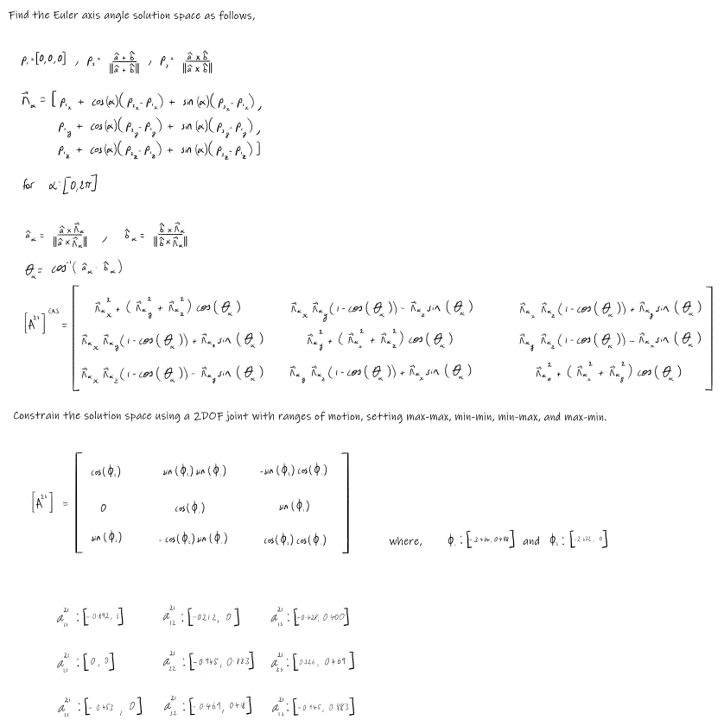 Find the Euler axis angle solution space as follows,
P₁=[0,0,0] , P₂= (â+b̂)/‖â+b̂‖ , P₃= (â×b̂)/‖â×b̂‖
n⃗_α = [ P₁ₓ + cos(α)(P₂ₓ-P₁ₓ) + sin(α)(P₃ₓ-P₁ₓ),
P₁_y + cos(α)(P₂_y-P₁_y) + sin(α)(P₃_y-P₁_y),
P₁_z + cos(α)(P₂_z-P₁_z) + sin(α)(P₃_z-P₁_z) ]
for α:[0,2π]
â_α = (â×n⃗_α)/‖â×n⃗_α‖ , b̂_α = (b̂×n⃗_α)/‖b̂×n⃗_α‖
θ_α = cos⁻¹(â_α · b̂_α)
n⃗_αx² + (n⃗_αy² + n⃗_αz²) cos(θ_α) n⃗_αx n⃗_αy(1-cos(θ_α)) - n⃗_αz sin(θ_α) n⃗_αx n⃗_αz(1-cos(θ_α)) + n⃗_αy sin(θ_α)
[A²¹] =
n⃗_αx n⃗_αy(1-cos(θ_α)) + n⃗_αz sin(θ_α) n⃗_αy² + (n⃗_αx² + n⃗_αz²) cos(θ_α) n⃗_αy n⃗_αz(1-cos(θ_α)) - n⃗_αx sin(θ_α)
n⃗_αx n⃗_αz(1-cos(θ_α)) - n⃗_αy sin(θ_α) n⃗_αy n⃗_αz(1-cos(θ_α)) + n⃗_αx sin(θ_α) n⃗_αz² + (n⃗_αx² + n⃗_αy²) cos(θ_α)
Constrain the solution space using a 2DOF joint with ranges of motion, setting max-max, min-min, min-max, and max-min.
cos(ϕ) sin(ϕ) sin(ϕ) -sin(ϕ) cos(ϕ)
[A²¹] = 0 cos(ϕ) sin(ϕ)
sin(ϕ) -cos(ϕ) sin(ϕ) cos(ϕ) cos(ϕ)
where, ϕ : and ϕ :
a₁₁²¹ : a₁₂²¹ : [-0.212, 0] a₁₃²¹ : [-0.428, 0.400]
a²¹ : [0, 0] a₂₂²¹ : [-0.945, 0.883] a₂₃²¹ :
a²¹ : [-0.453, 0] a₃₂²¹ : a₃₃²¹ : [-0.945, 0.883]